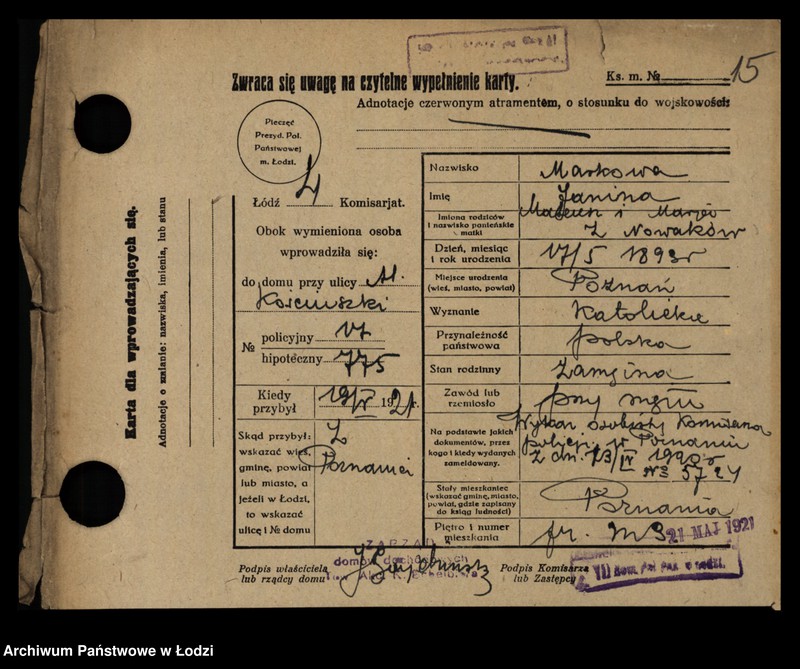 Zwraca się uwagę na czytelne wypełnienie karty.
Ks. m. № 15
Adnotacje czerwonym atramentem, o stosunku do wojskowości:
Pieczęć
Prezyd. Pol.
Państwowej
m. Łodzi.
Karta dla wprowadzających się.
Adnotacje o zmianie: nazwiska, imienia, lub stanu
Łódź 4 Komisarjat.
Obok wymieniona osoba
wprowadziła się:
do domu przy ulicy Al.
Kościuszki
№ policyjny 17
hipoteczny 775
Kiedy przybył 19/V 1921 r.
Skąd przybył:
wskazać wieś,
gminę, powiat
lub miasto, a
jeżeli w Łodzi,
to wskazać
ulicę i № domu
Z
Poznania
Nazwisko Markowa
Imię Janina
Imiona rodziców
i nazwisko panieńskie
matki
Mateusz i Marja
z Nowaków
Dzień, miesiąc
i rok urodzenia
17/5 1893 r
Miejsce urodzenia
(wieś, miasto, powiat)
Poznań
Wyznanie katolickie
Przynależność
państwowa
polska
Stan rodzinny zamężna
Zawód lub
rzemiosło
przy mężu
Na podstawie jakich
dokumentów, przez
kogo i kiedy wydanych
zameldowany.
Wykaz osobisty
policji w Poznaniu
z dn. 23/IV 1920 r
№ 5724
Stały mieszkaniec
(wskazać gminę, miasto,
powiat, gdzie zapisany
do ksiąg ludności)
Poznania
Piętro i numer
mieszkania
fr. m 3
21 MAJ 1921
ZARZĄD
domów dochodowych
Podpis właściciela
lub rządcy domu
Podpis Komisarza
lub Zastępcy
VII Kom. Pol. Pań. w Łodzi.
Archiwum Państwowe w Łodzi